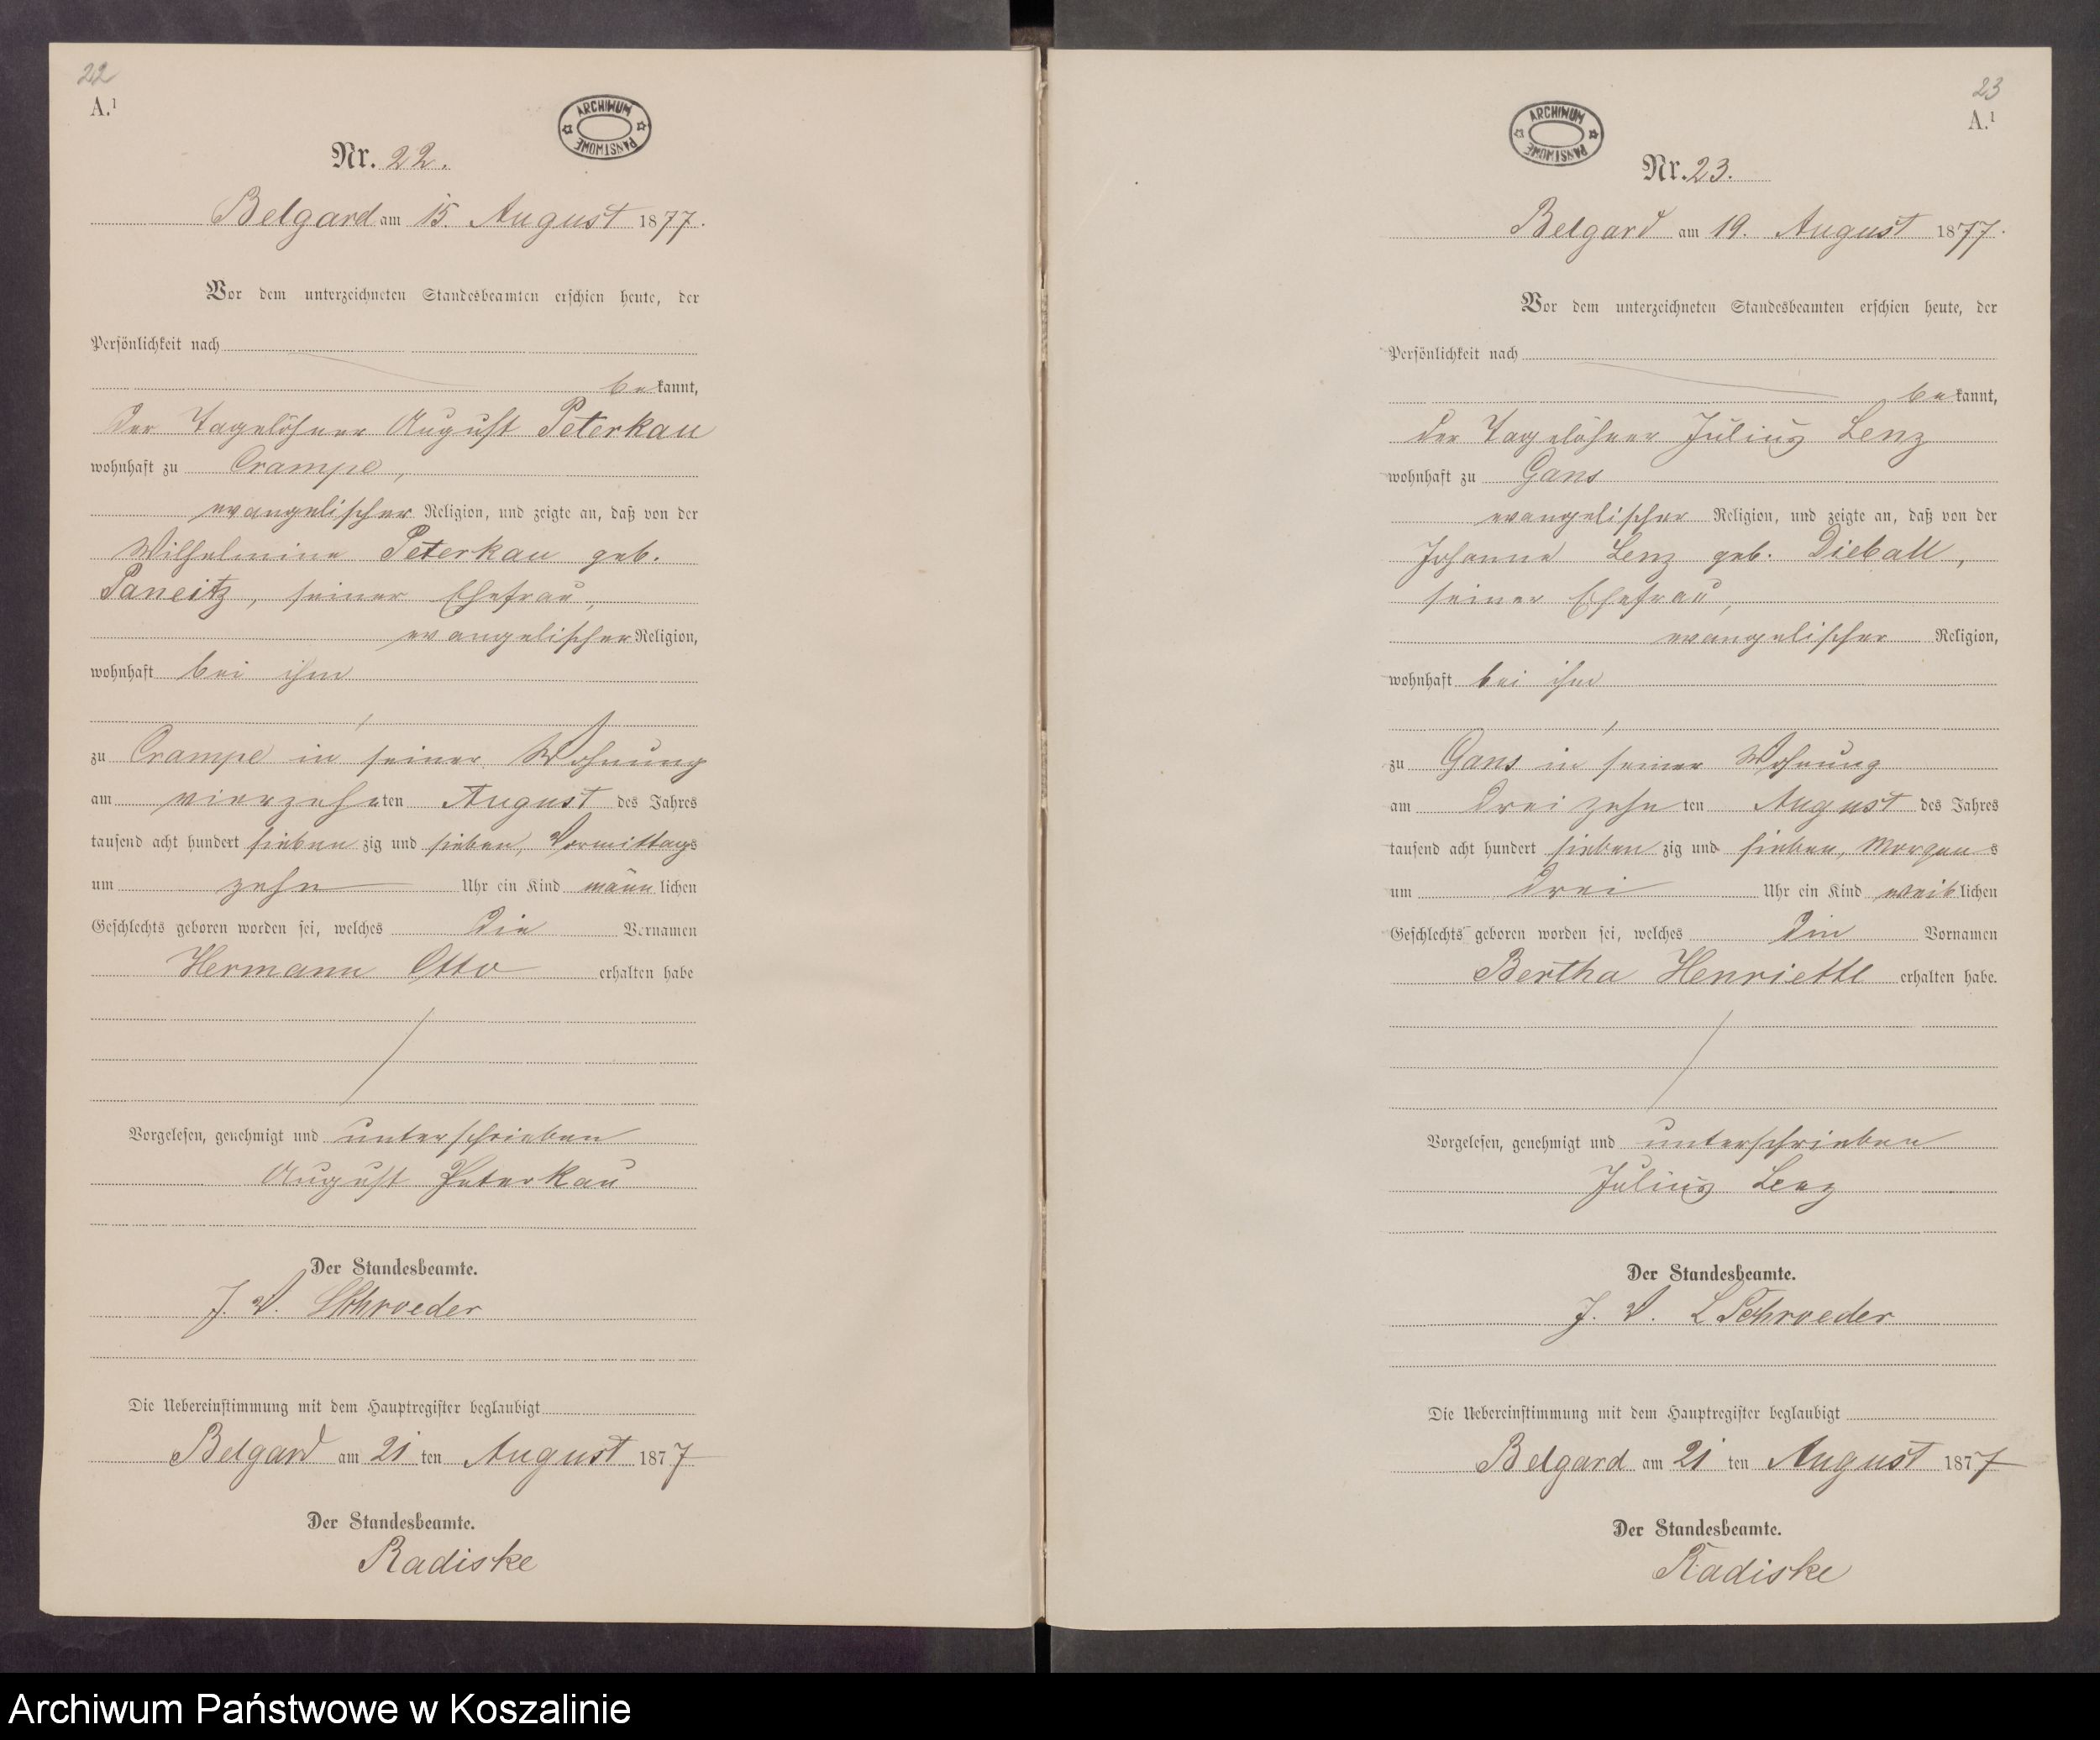 22
A.¹
ARCHIWUM PAŃSTWOWE
Nr. 22.
Belgard am 15. August 1877.
Vor dem unterzeichneten Standesbeamten erschien heute, der
Persönlichkeit nach
bekannt,
der Tagelöhner August Peterkau
wohnhaft zu Crampe,
evangelischer Religion, und zeigte an, daß von der
Wilhelmine Peterkau geb.
Paneitz, seiner Ehefrau,
evangelischer Religion,
wohnhaft bei ihm
zu Crampe in seiner Wohnung
am vierzehnten August des Jahres
tausend acht hundert siebenzig und sieben, Vormittags
um zehn Uhr ein Kind männlichen
Geschlechts geboren worden sei, welches die Vornamen
Hermann Otto erhalten habe
Vorgelesen, genehmigt und unterschrieben
August Peterkau
Der Standesbeamte.
J. V. LSchroeder
Die Uebereinstimmung mit dem Hauptregister beglaubigt
Belgard am 21 ten August 1877
Der Standesbeamte.
Radiske
23
A.¹
ARCHIWUM PAŃSTWOWE
Nr. 23.
Belgard am 19. August 1877.
Vor dem unterzeichneten Standesbeamten erschien heute, der
Persönlichkeit nach
bekannt,
der Tagelöhner Julius Lenz
wohnhaft zu Gans
evangelischer Religion, und zeigte an, daß von der
Johanne Lenz geb. Dieball,
seiner Ehefrau,
evangelischer Religion,
wohnhaft bei ihm
zu Gans in seiner Wohnung
am dreizehnten August des Jahres
tausend acht hundert siebenzig und sieben, Morgens
um drei Uhr ein Kind weiblichen
Geschlechts geboren worden sei, welches die Vornamen
Bertha Henriette erhalten habe.
Vorgelesen, genehmigt und unterschrieben
Julius Lenz
Der Standesbeamte.
J. V. LSchroeder
Die Uebereinstimmung mit dem Hauptregister beglaubigt
Belgard am 21 ten August 1877
Der Standesbeamte.
Radiske
Archiwum Państwowe w Koszalinie